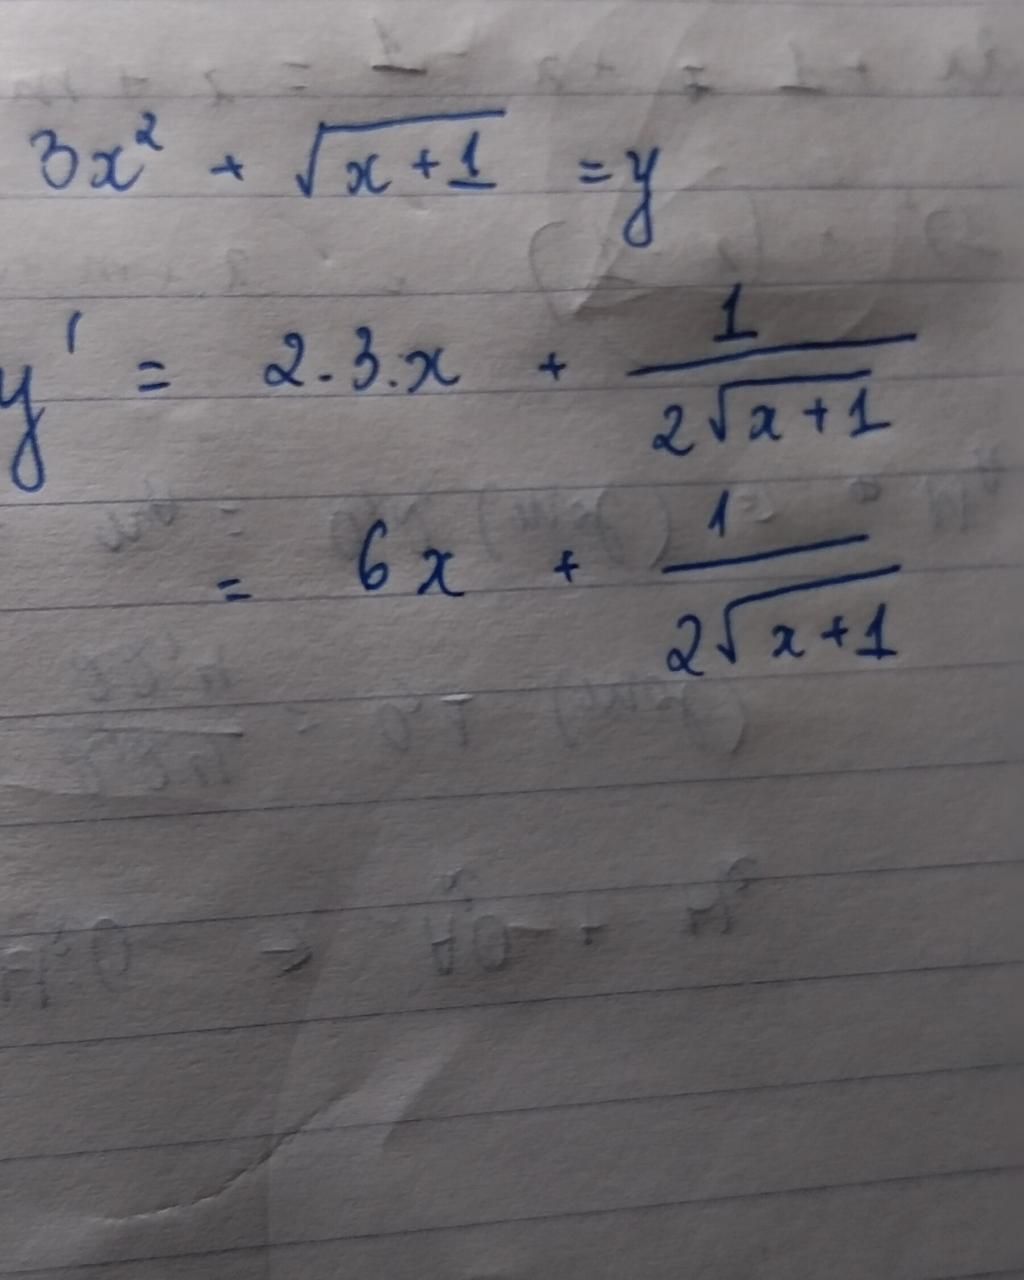 3x² + √(x + 1) = y
y' = 2.3.x + 1/(2√(x + 1))
= 6x + 1/(2√(x + 1))